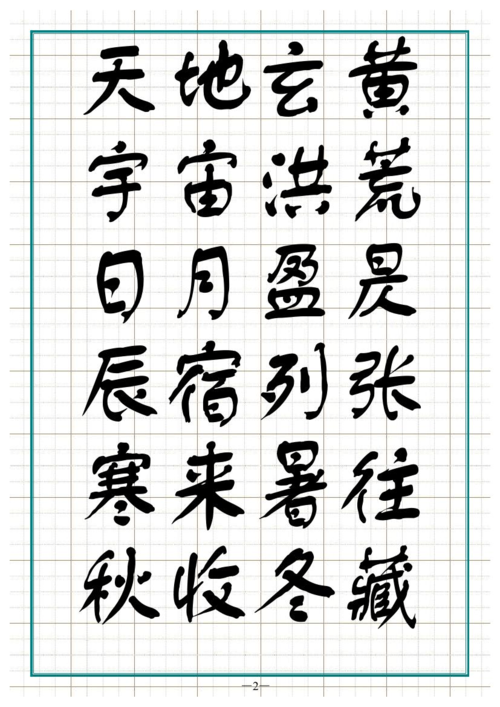 天地玄黄
宇宙洪荒
日月盈昃
辰宿列张
寒来暑往
秋收冬藏
—2—